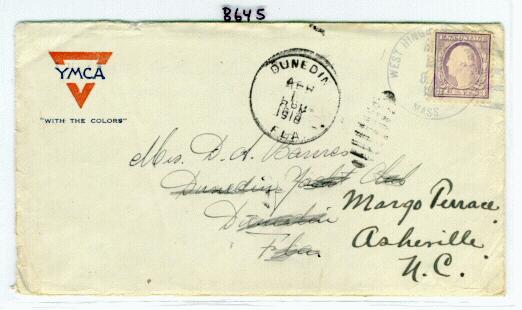 8645
YMCA
"WITH THE COLORS"
DUNEDIN
APR
1
PM
1918
FLA.
WEST HING
MASS
Mrs. D. A. Barnes
Dunedin Yacht Club
Dunedin
Fla.
Margo Terrace
Asheville
N.C.